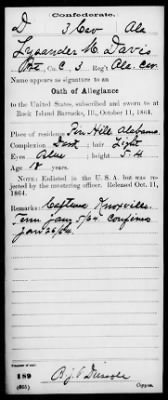 Confederate.
D 3 Cav Ala
Lysander M. Davis
Pvt, Co. C, 3 Reg't Ala. Cav.
Name appears as signature to an
Oath of Allegiance
to the United States, subscribed and sworn to at
Rock Island Barracks, Ill., October 11, 1864.
Place of residence Pen Hill, Alabama
Complexion Dark, hair Light
Eyes Blue, height 5.4
Age 18 years.
NOTE: Enlisted in the U. S. A. but was rejected
by the mustering officer. Released Oct. 11,
1864.
Remarks: Capture Knoxville
Tenn Jany 5/64 confines
Jan 26/64
Number of roll:
189
(665)
Copyist.